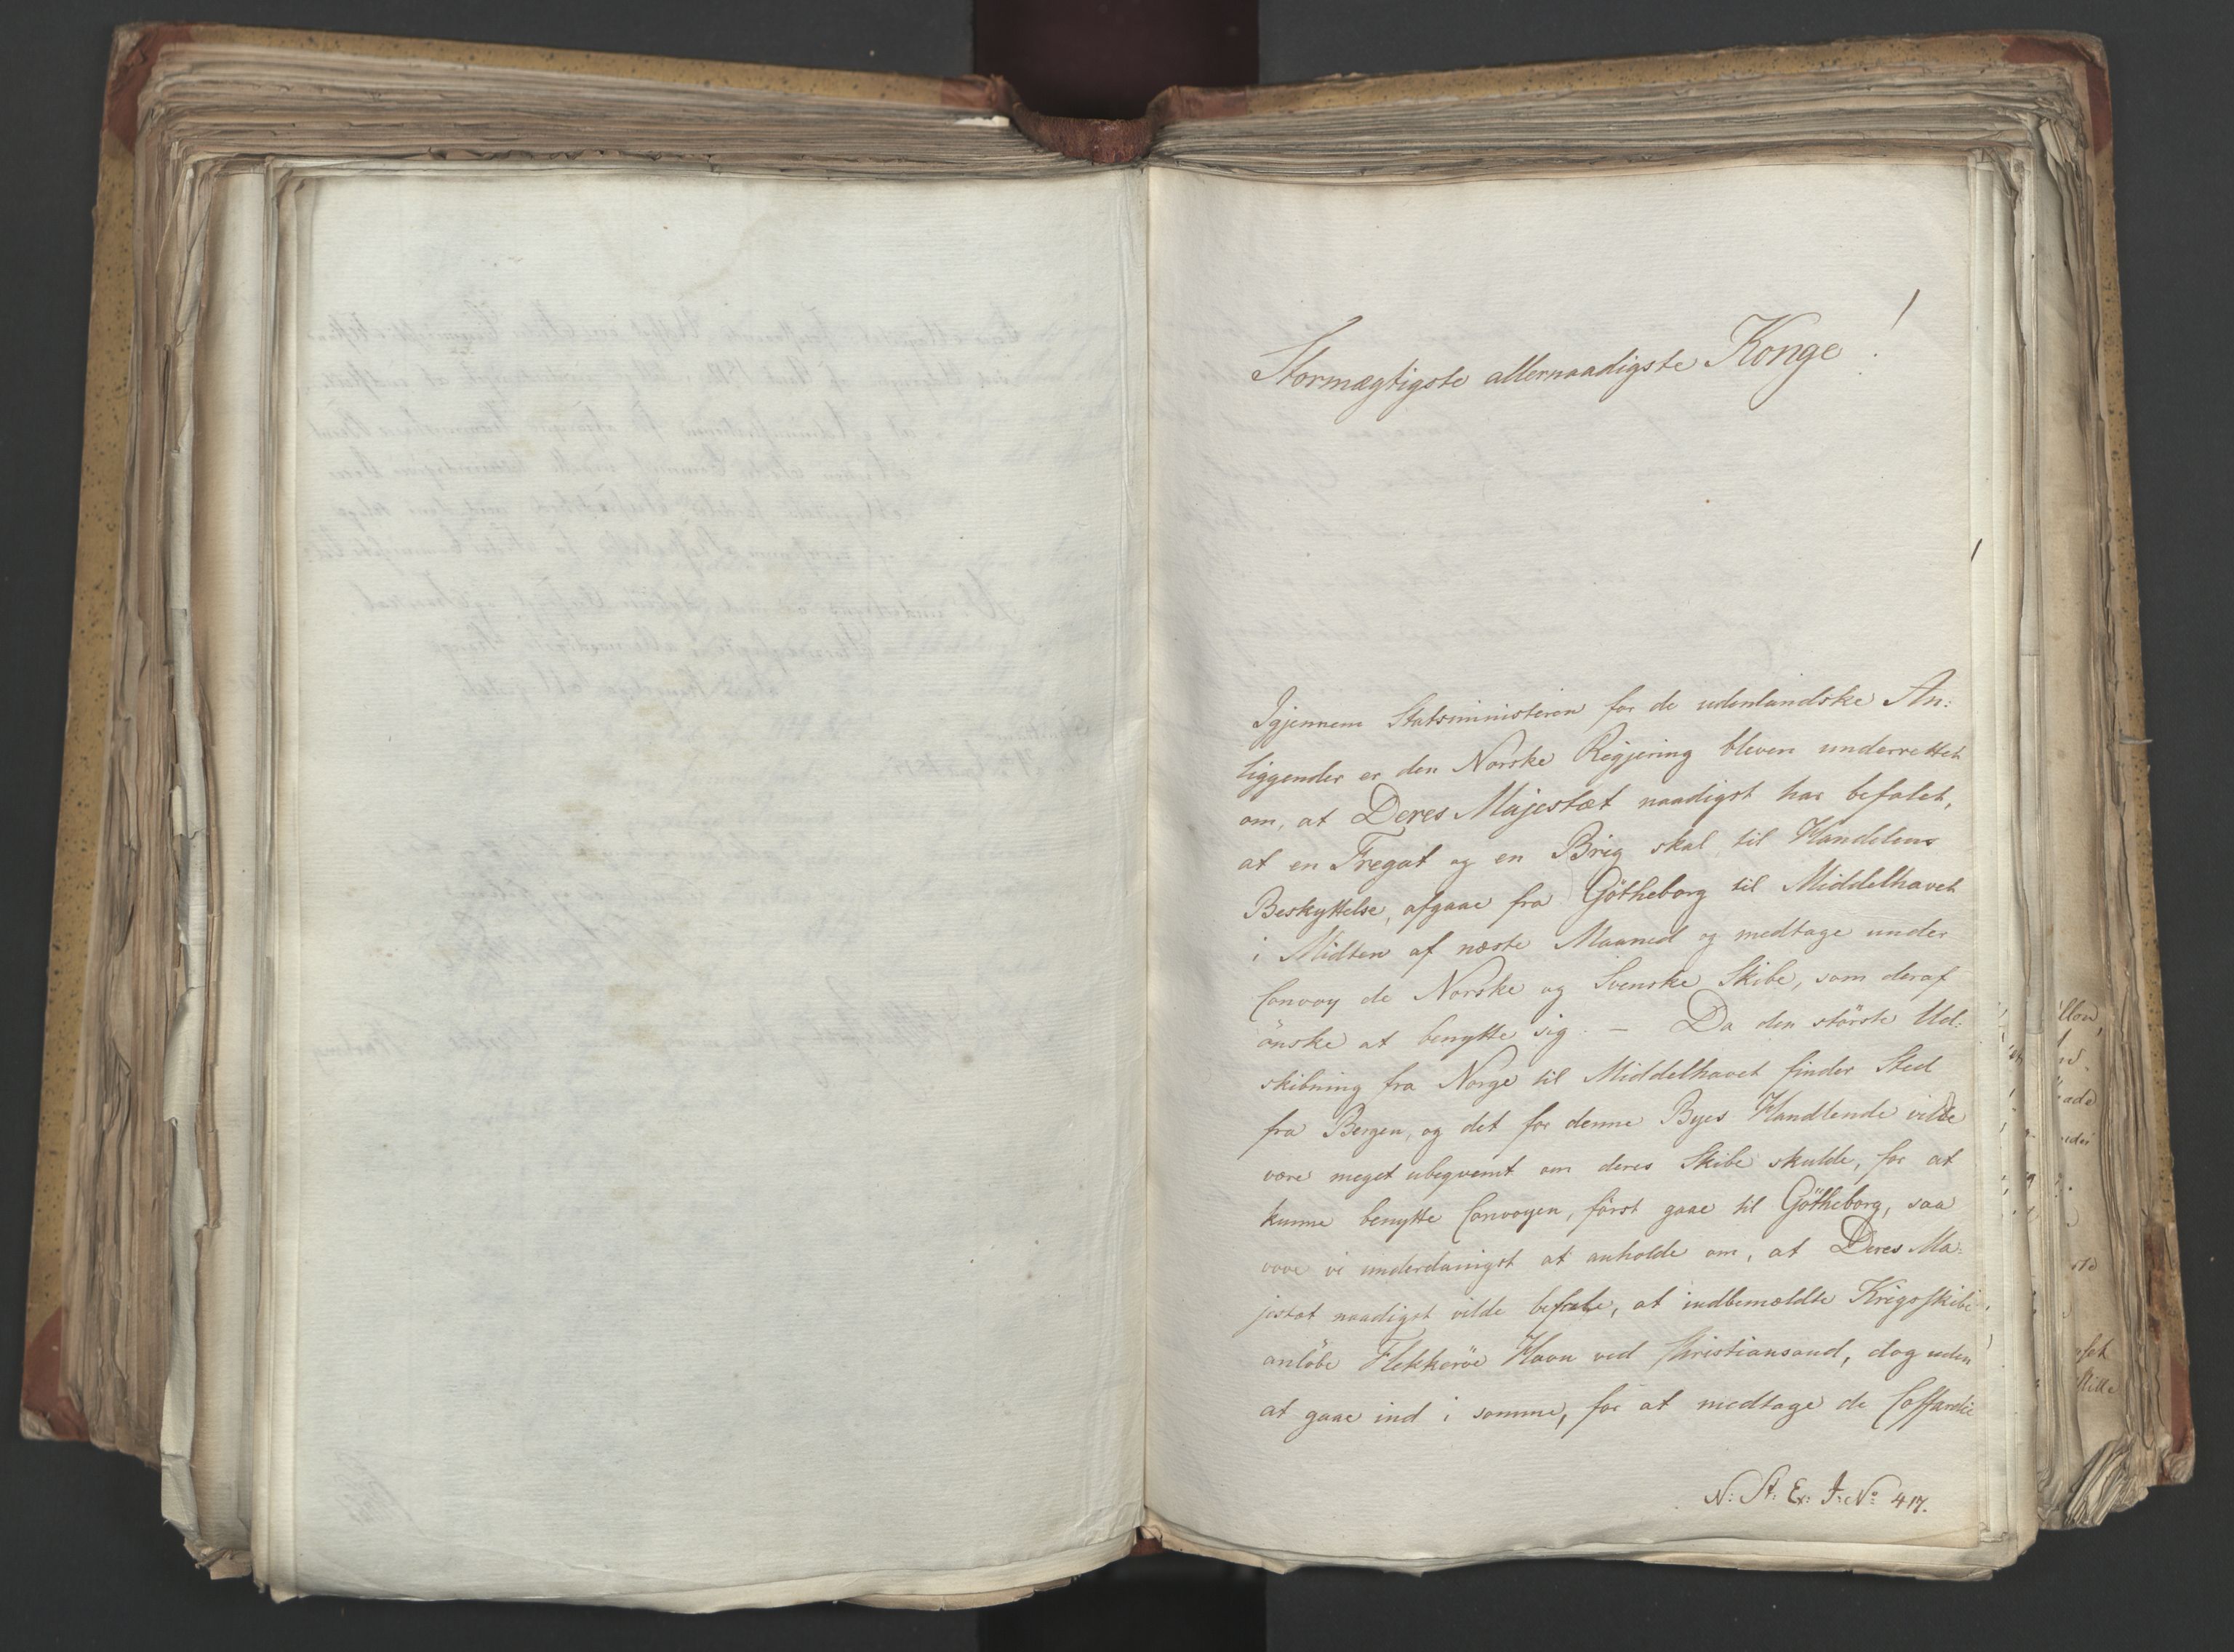 Stormægtigste allernaadigste Konge!
Igjennem Statsministeren for de udenlandske An:
liggender er den Norske Regjering bleven underrettet
om, at Deres Majestæt naadigst har befalet,
at en Fregat og en Brig skal til Handelens
Beskyttelse, afgaae fra Götheborg til Middelhavet
i Midten af næste Maaned og medtage under
Convoy de Norske og Svenske Skibe, som deraf
önske at benytte sig. — Da den störste Ud:
skibning fra Norge til Middelhavet finder Sted
fra Bergen, og det for denne Byes Handlende vilde
være meget ubeqvemt om deres Skibe skulde, for at
kunne benytte Convoyen, först gaae til Götheborg, saa
vove vi underdanigst at anholde om, at Deres Ma:
jestæt naadigst vilde befale, at indbemældte Krigsskibe
anlöbe Flekkeröe Havn ved Christiansand, dog uden
at gaae ind i samme, for at medtage de Coffardie
N: St: Ex: J: No 417.